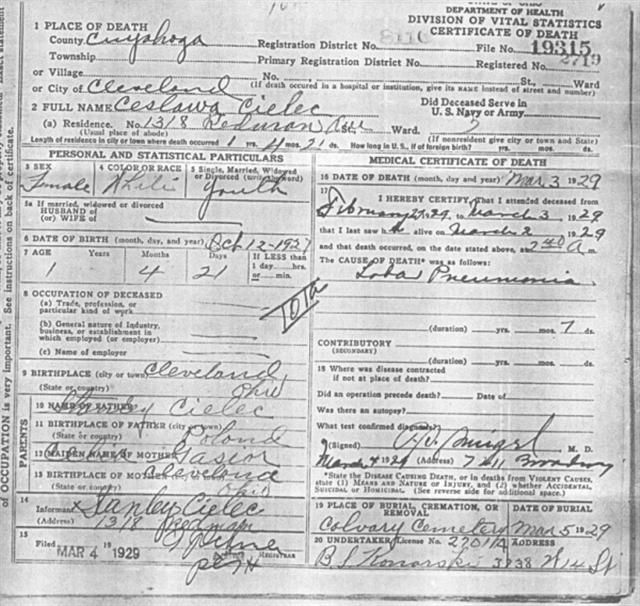 DEPARTMENT OF HEALTH
DIVISION OF VITAL STATISTICS
CERTIFICATE OF DEATH
1 PLACE OF DEATH
County Cuyahoga Registration District No. 8110 File No. 19315
Township Primary Registration District No. Registered No. 2719
or Village No. St., Ward
or City of Cleveland (If death occurred in a hospital or institution, give its NAME instead of street and number)
2 FULL NAME Ceslawa Cielec Did Deceased Serve in U. S. Navy or Army
(a) Residence. No. 1318 Redman Ave Ward.
(Usual place of abode) (If nonresident give city or town and State)
Length of residence in city or town where death occurred 1 yrs. 4 mos. 21 ds. How long in U. S., if of foreign birth? yrs. mos. ds.
PERSONAL AND STATISTICAL PARTICULARS
3 SEX Female
4 COLOR OR RACE White
5 Single, Married, Widowed or Divorced (write the word)
5a If married, widowed or divorced
HUSBAND of
(or) WIFE of
6 DATE OF BIRTH (month, day, and year) Oct 12-1927
7 AGE Years Months Days If LESS than
1 4 21 1 day hrs.
or min.
8 OCCUPATION OF DECEASED
(a) Trade, profession, or
particular kind of work
(b) General nature of Industry,
business, or establishment in
which employed (or employer)
(c) Name of employer
9 BIRTHPLACE (city or town) Cleveland
(State or country) Ohio
PARENTS
10 NAME OF FATHER Stanley Cielec
11 BIRTHPLACE OF FATHER (city or town)
(State or country) Poland
12 MAIDEN NAME OF MOTHER Gasior
13 BIRTHPLACE OF MOTHER Cleveland
Ohio
14
Informant Stanley Cielec
(Address) 1318 Redman
15
Filed MAR 4 1929 REGISTRAR
MEDICAL CERTIFICATE OF DEATH
16 DATE OF DEATH (month, day and year) Mar 3 1929
17
I HEREBY CERTIFY, That I attended deceased from
February 27, 29, to March 3, 1929
that I last saw h alive on March 2 1929
and that death occurred, on the date stated above, at 2 40 A m.
The CAUSE OF DEATH was as follows:
Lobar Pneumonia
(duration) yrs. mos. 7 ds.
CONTRIBUTORY
(SECONDARY)
(duration) yrs. mos. ds.
18 Where was disease contracted
if not at place of death?
Did an operation precede death? Date of
Was there an autopsy?
What test confirmed diagnosis?
(Signed) M. D.
March 4 1929 (Address) 7611 Broadway
*State the DISEASE CAUSING DEATH, or in deaths from VIOLENT CAUSES,
state (1) MEANS AND NATURE OF INJURY, and (2) whether ACCIDENTAL,
SUICIDAL or HOMICIDAL. (See reverse side for additional space.)
19 PLACE OF BURIAL, CREMATION, OR REMOVAL DATE OF BURIAL
Calvary Cemetery Mar 5 1929
20 UNDERTAKER License No. 2701A ADDRESS
B L Konarski 3738 W 14 St
of OCCUPATION is very important. See instructions on back of certificate.